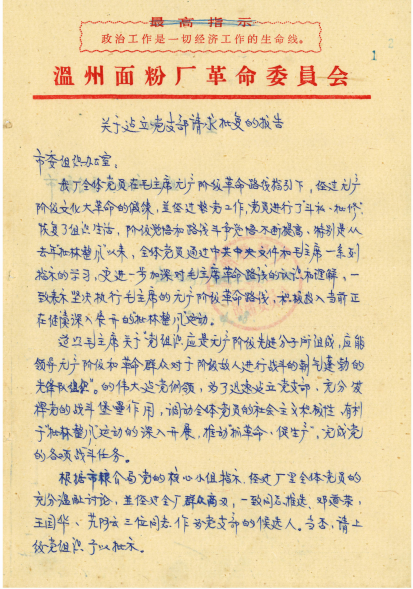 最高指示
政治工作是一切经济工作的生命线。
1
溫州面粉厂革命委員会
关于建立党支部请求批复的报告
市委组织办公室:
我厂全体党员在毛主席无产阶级革命路线指引下,经过无产
阶级文化大革命的锻练,並经过整党工作,党员进行了"斗私、批修"
恢复了组织生活,阶级觉悟和路线斗争觉悟不断提高,特别是从
去年"批林整风"以来,全体党员通过中共中央文件和毛主席一系列
指示的学习,更进一步加深对毛主席革命路线的认识和理解,一
致表示坚决执行毛主席的无产阶级革命路线,积极投入当前正
在继续深入开展的批林整风运动。
遵照毛主席关于"党组织应是无产阶级先进分子所组成,应能
领导无产阶级和革命群众对于阶级敌人进行战斗的朝气蓬勃的
先锋队组织"。的伟大建党纲领,为了迅速建立党支部,充分发
挥党的战斗堡垒作用,调动全体党员的社会主义积极性,有利
于"批林整风"运动的深入开展,推动"抓革命、促生产",完成党
的各项战斗任务。
根据市粮食局党的核心小组指示,经过厂里全体党员的
充分酝酿讨论,並经过全厂群众商议,一致同意推选、邓
王国华、 三位同志作为党支部的候选人。当否,请上
级党组织予以批示。